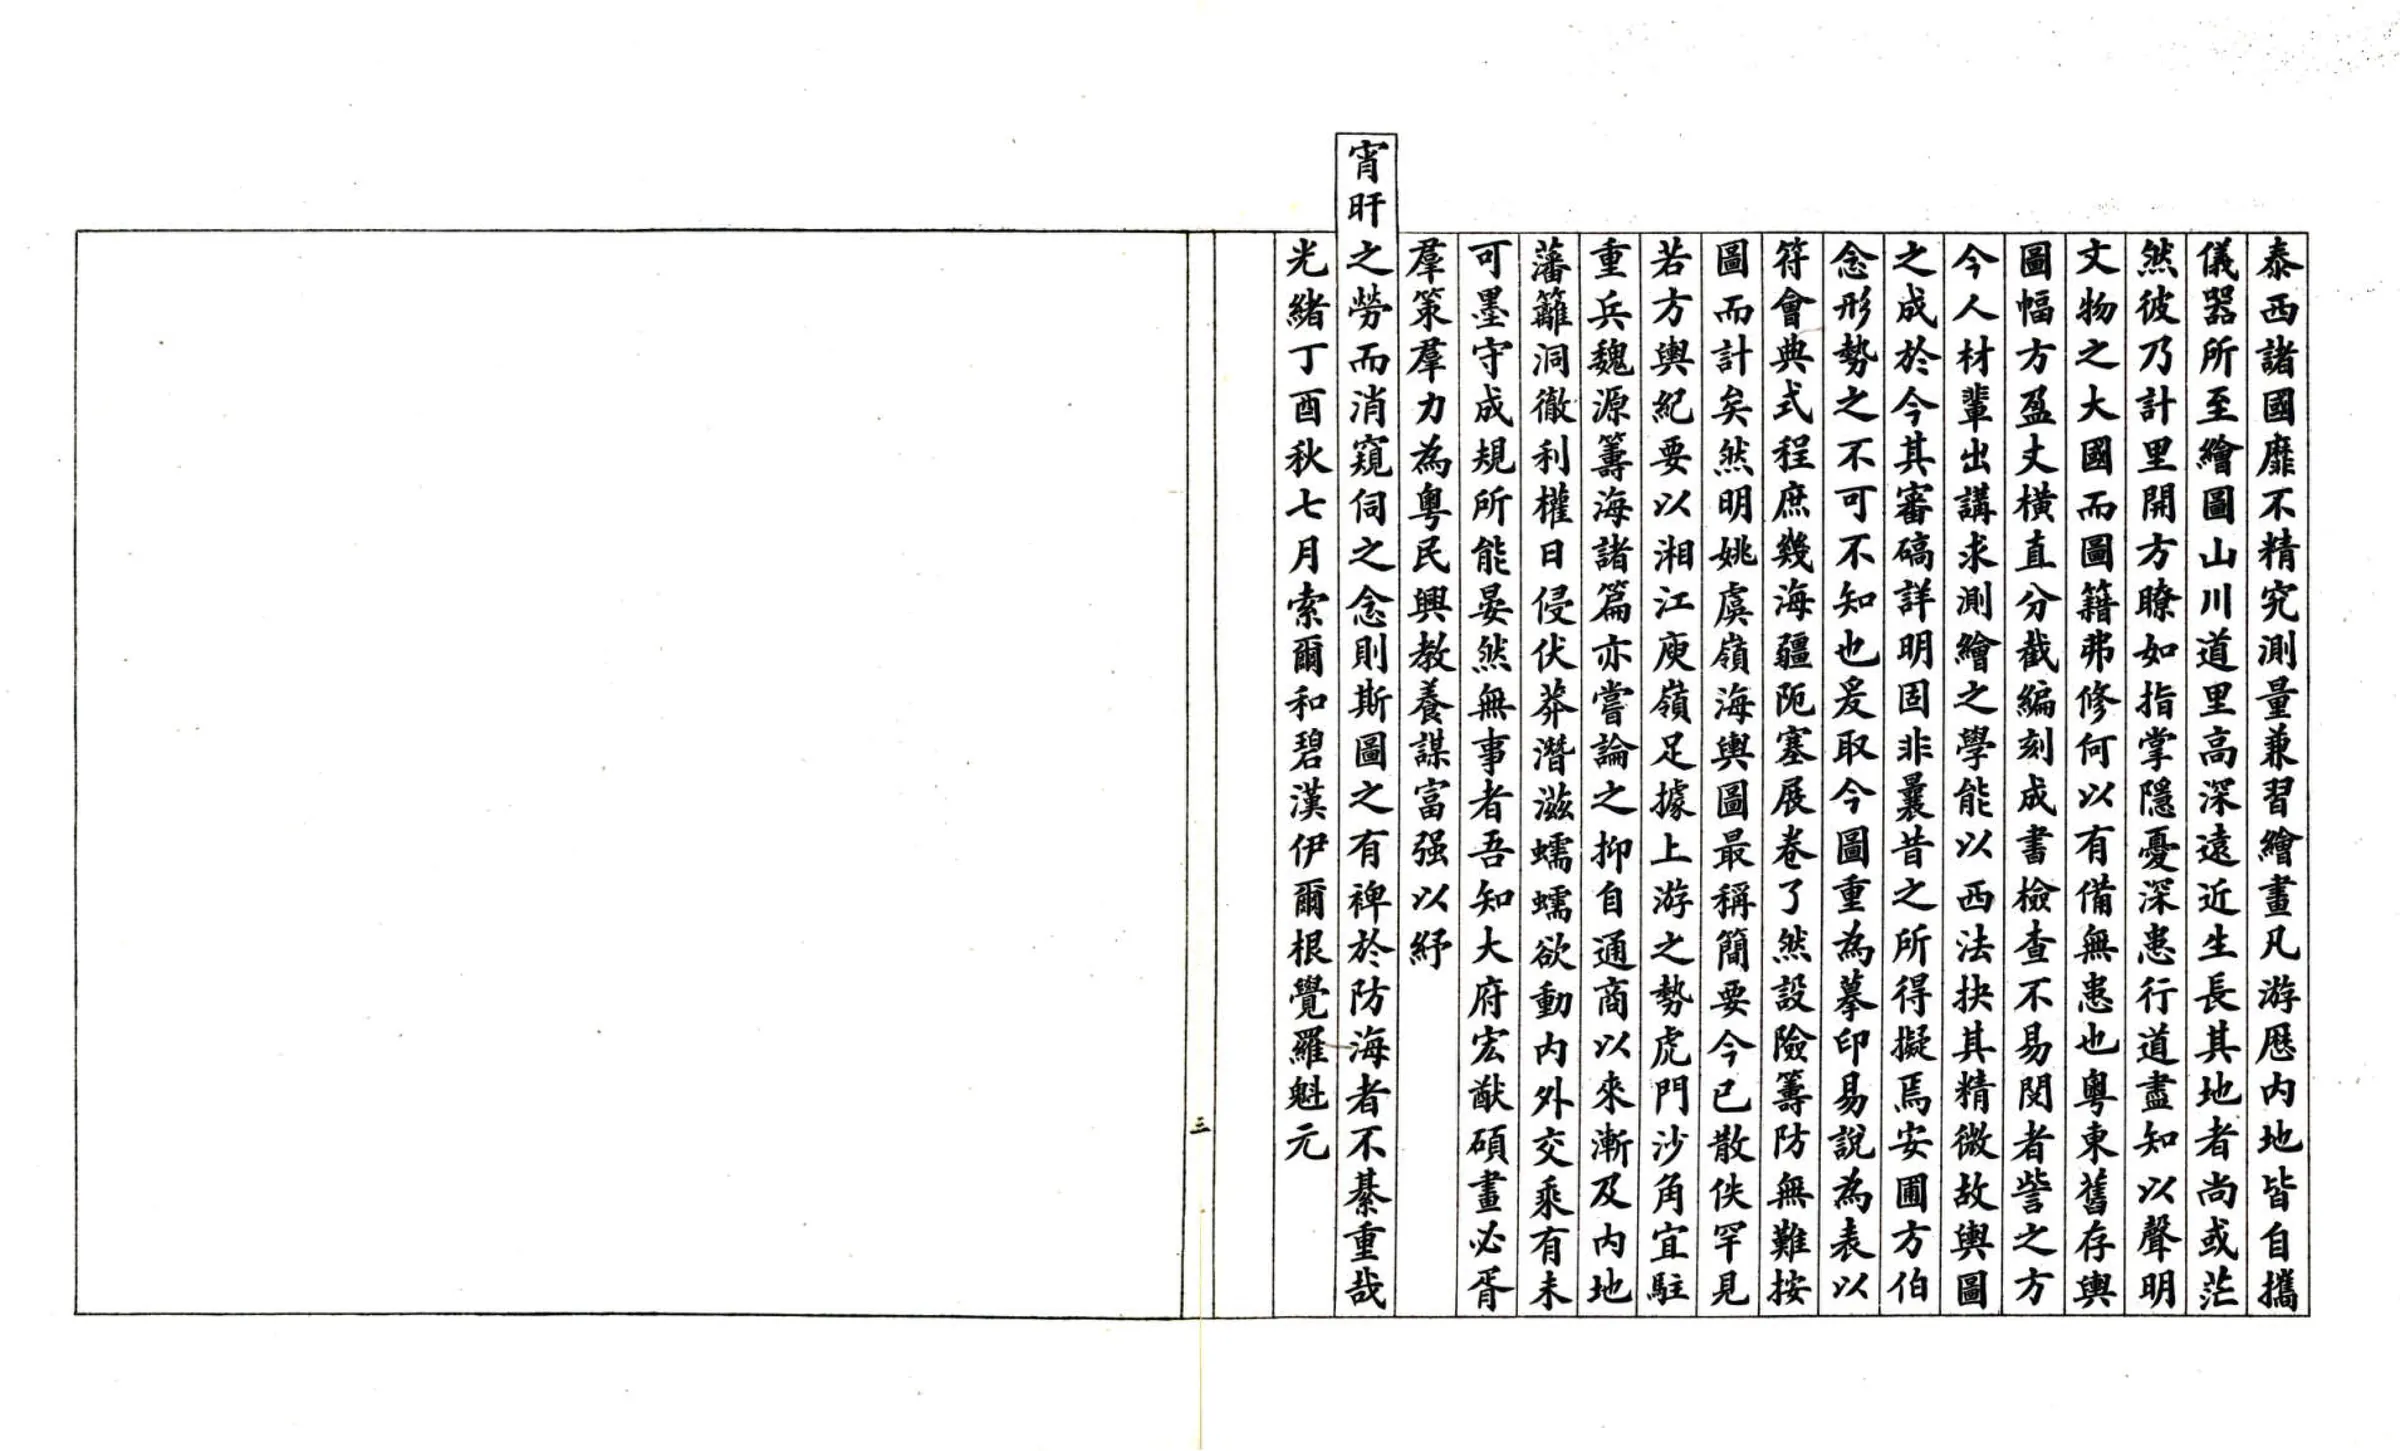 泰西諸國靡不精究測量兼習繪畫凡游歷内地皆自攜
儀器所至繪圖山川道里高深遠近生長其地者尚或茫
然彼乃計里開方瞭如指掌隱憂深患行道盡知以聲明
文物之大國而圖籍弗修何以有備無患也粵東舊存輿
圖幅方盈丈橫直分截編刻成書檢查不易閱者訾之方
今人材輩出講求測繪之學能以西法抉其精微故輿圖
之成於今其審碻詳明固非曩昔之所得擬焉安圃方伯
念形勢之不可不知也爰取今圖重為摹印易說為表以
符會典式程庶幾海疆阨塞展卷了然設險籌防無難按
圖而計矣然明姚虞嶺海輿圖最稱簡要今已散佚罕見
若方輿紀要以湘江庾嶺足據上游之勢虎門沙角宜駐
重兵魏源籌海諸篇亦嘗論之抑自通商以來漸及内地
藩籬洞徹利權日侵伏莽潛滋蠕蠕欲動内外交乘有未
可墨守成規所能晏然無事者吾知大府宏猷碩畫必胥
羣策羣力為粵民興教養謀富强以紓
宵旰之勞而消窺伺之念則斯圖之有裨於防海者不綦重哉
光緒丁酉秋七月索爾和碧漢伊爾根覺羅魁元
三